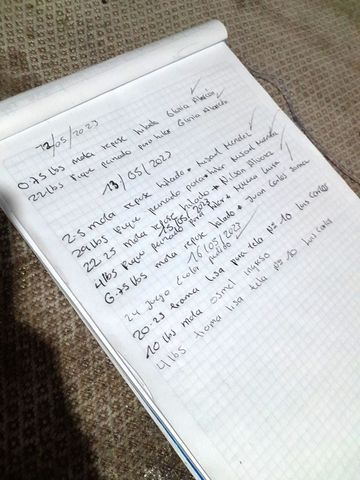 12/05/2023
0.75 lbs mota repise hilado Gloria Alarcón
22 lbs Pique peinado para hilar Gloria Alarcón
13/05/2023
2-5 mota repise hilado • Misael Mendez
20 lbs Pique peinado para hilar Misael Mendez
22.25 mota repise hilado • Nilson Alvarez
15/05/2023
4 lbs Pique peinado para hilar •
6.75 lbs mota repise hilado • Juan Carlos
16/05/2023
24 Juego color
20-23 trama lisa para tela Nº 10 Luis Carlos
10 lbs mota ingreso
4 lbs trama lisa tela Nº 10 Luis Carlos